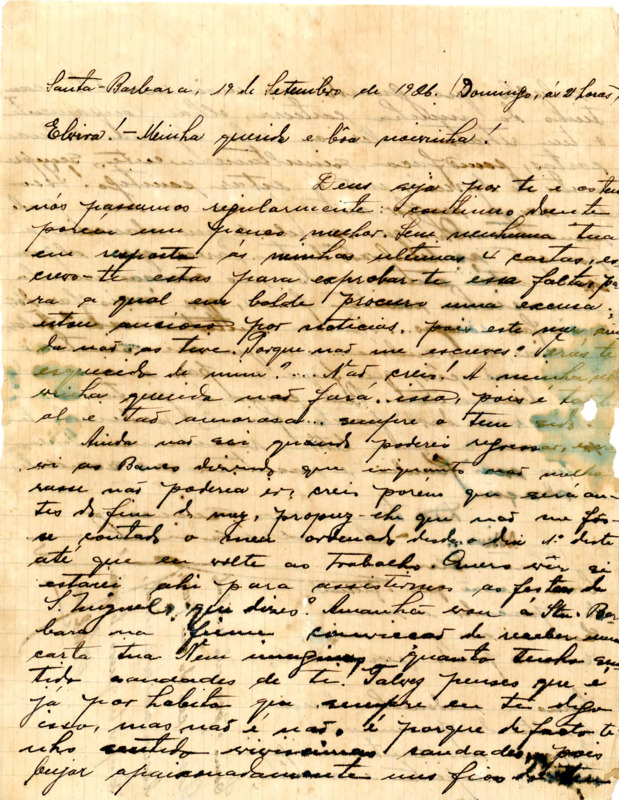 Santa-Barbara, 19 de Setembro de 1926. (Domingo, ás 21 horas)
Elvira! - Meinha querida e bôa noivinha!
Deus seja por ti e os teus
nós passamos regularmente: continuo doente
porém um pouco melhor. Sem nenhuma tua
em resposta ás minhas ultimas 4 cartas, es
crevo-te estas para exprobar-te essa falta, pa
ra a qual em balde procuro uma excusa;
estou ancioso por noticias, pois este mez ain
da não as tive. Porque não me escreves? Terás te
esquecido de mim?... Não creis! A minha
vinha querida não fará isso, pois é
el e tão amorosa... sempre o tem sido.
Ainda não sei quando poderei regressar,
vi ao Banco dizendo que inquanto não melho
rasse não poderia ir, creis porém que será an
tes do fim do mez, propuz-lhe que não me fos-
se contado o meu ordenado desde o dia 1º deste
até que eu volte ao trabalho. Quero vêr si
estarei ahi para assistirmos as festas de
S. Miguel, que dizes? Amanhã vou a Sta. Bar
bara na firme convicção de receber uma
carta tua. Nem imaginas quanto tenho sen
tido saudades de ti! Talvez penses que é
já por habito que sempre em ti digo
isso, mas não é não, é porque de facto te
nho sentido vivissimas saudades, pois
beijar apaixonadamente uns fios do teu